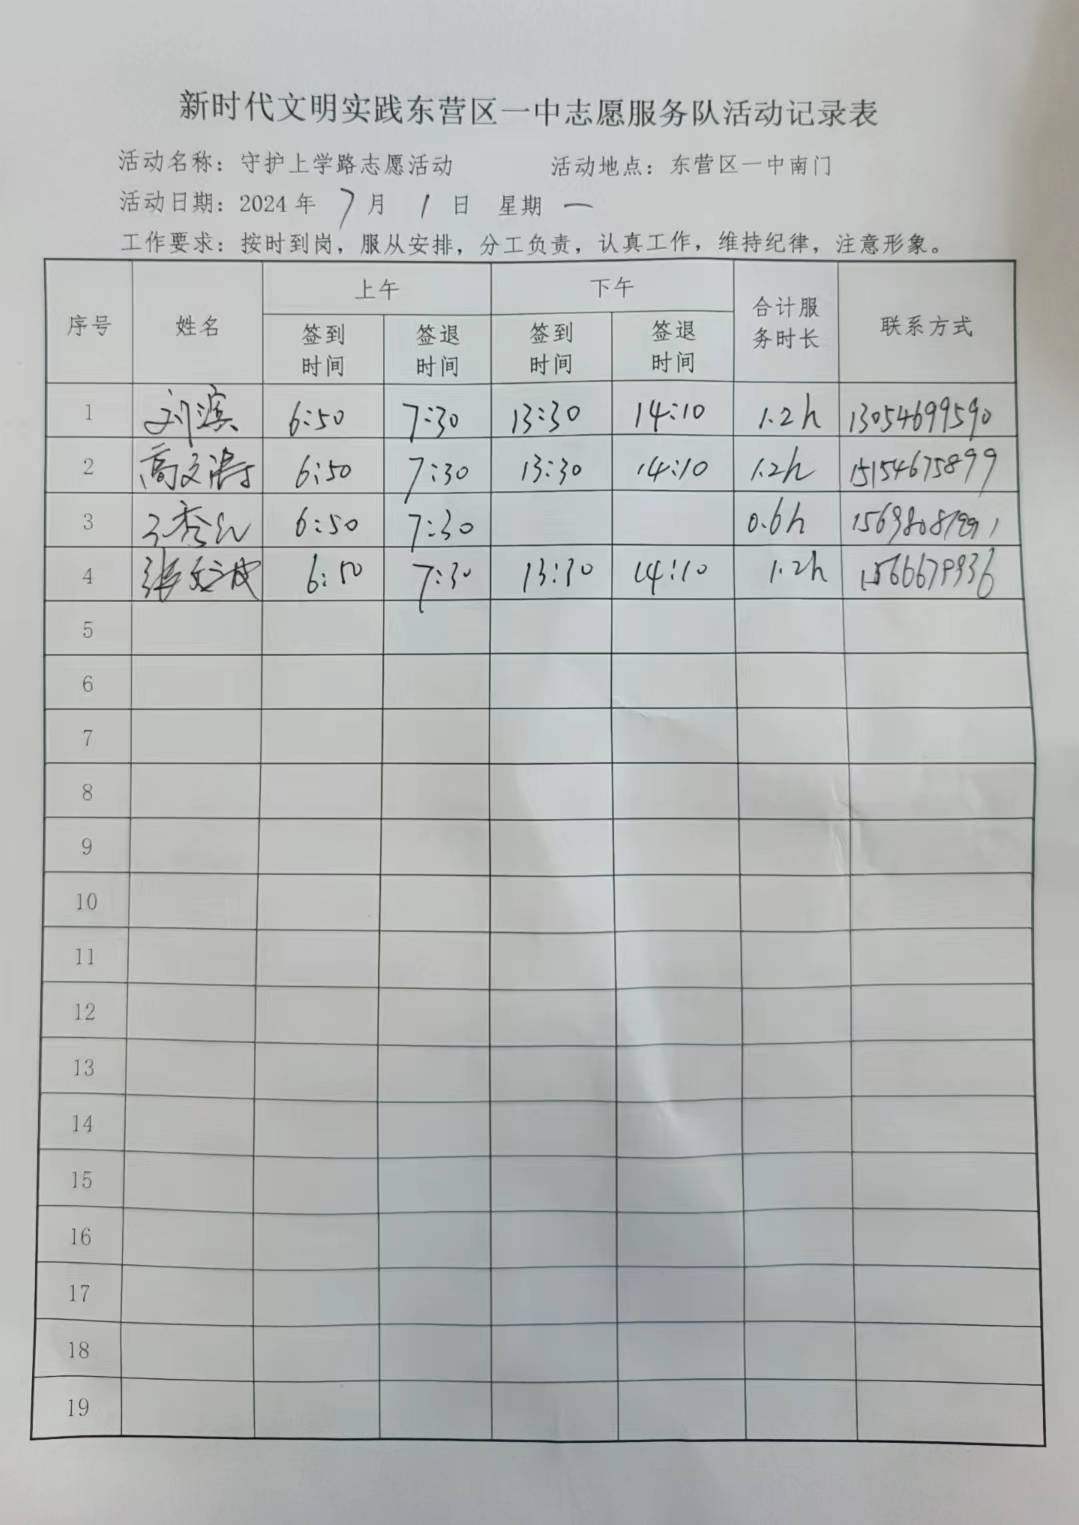 新时代文明实践东营区一中志愿服务队活动记录表
活动名称：守护上学路志愿活动 活动地点：东营区一中南门
活动日期：2024 年 7 月 1 日 星期 一
工作要求：按时到岗，服从安排，分工负责，认真工作，维持纪律，注意形象。
序号 姓名 上午 下午 合计服务时长 联系方式
签到时间 签退时间 签到时间 签退时间
1 刘滨 6:50 7:30 13:30 14:10 1.2h 13054699590
2 高文涛 6:50 7:30 13:30 14:10 1.2h 15154675899
3 6:50 7:30 0.6h
4 张文成 6:50 7:30 13:30 14:10 1.2h
5
6
7
8
9
10
11
12
13
14
15
16
17
18
19